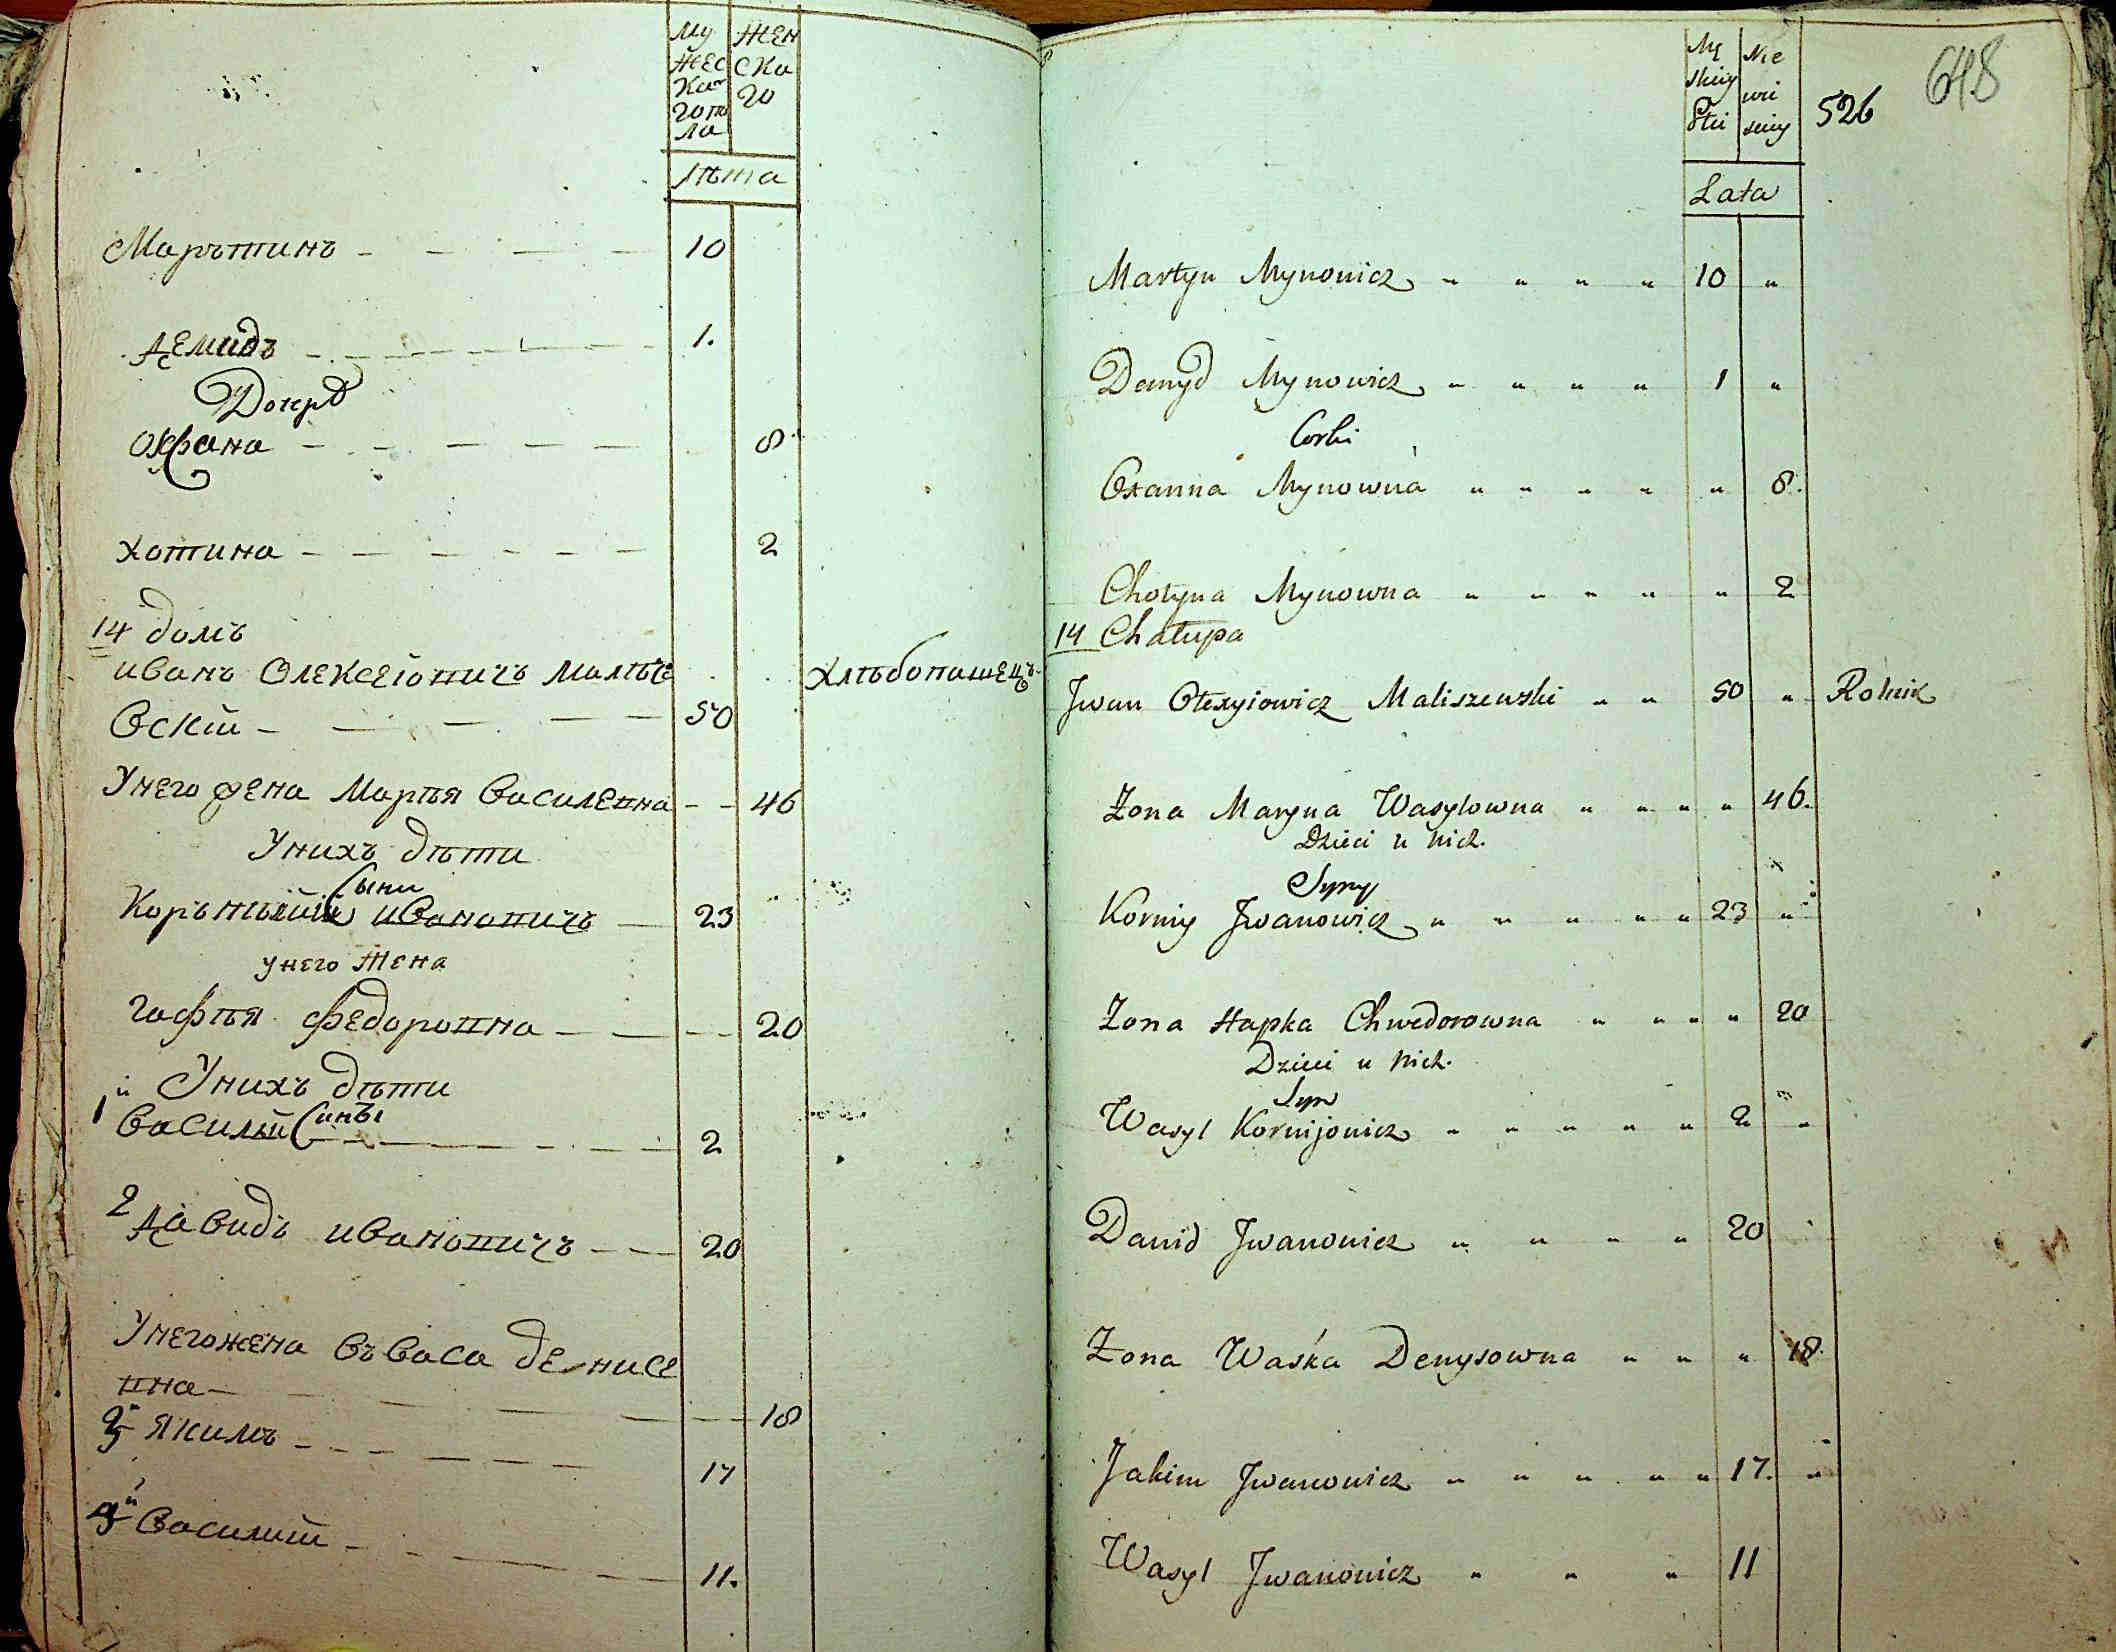 Му
жес
ка
го по
ла
жен
ска
го
лѣта
Марътинъ 10
Демидъ 1.
Дочерѣ
Оксана 8
Хотина 2
14 домъ
иванъ Олексеіовичъ Малѣше
вскій 50 хлѣбопашецъ
У него жена Марья Василевна 46
У нихъ дѣти
Сыни
Коръній ивановичъ 23
у него жена
Гафія Федоровна 20
У нихъ дѣти
Сины
1й Василій 2
2 Давидъ ивановичъ 20
У него жена Въваса денисе
вна 18
3 якимъ 17
4й Василій 11.
Mę
skiey
Płci
Nie
wie
sciey
526
648
Lata
Martyn Mynowicz " " " " 10 "
Demyd Mynowicz " " " " 1 "
Corki
Oxanna Mynowna " " " " " 8.
Chotyna Mynowna " " " " " 2
14 Chałupa
Jwan Ołexyiowicz Maliszewski " " 50 " Rolnik
Żona Maryna Wasylowna " " " " 46.
Dzieci u nich.
Syny
Korniy Jwanowicz " " " " " 23 "
Żona Hapka Chwedorowna " " " " 20
Dzieci u nich.
Syn
Wasyl Kornijowicz " " " " " 2 "
Dawid Jwanowicz " " " " 20
Żona Waśka Denysowna " " " 18.
Jakim Jwanowicz " " " " " 17. "
Wasyl Jwanowicz " " " 11